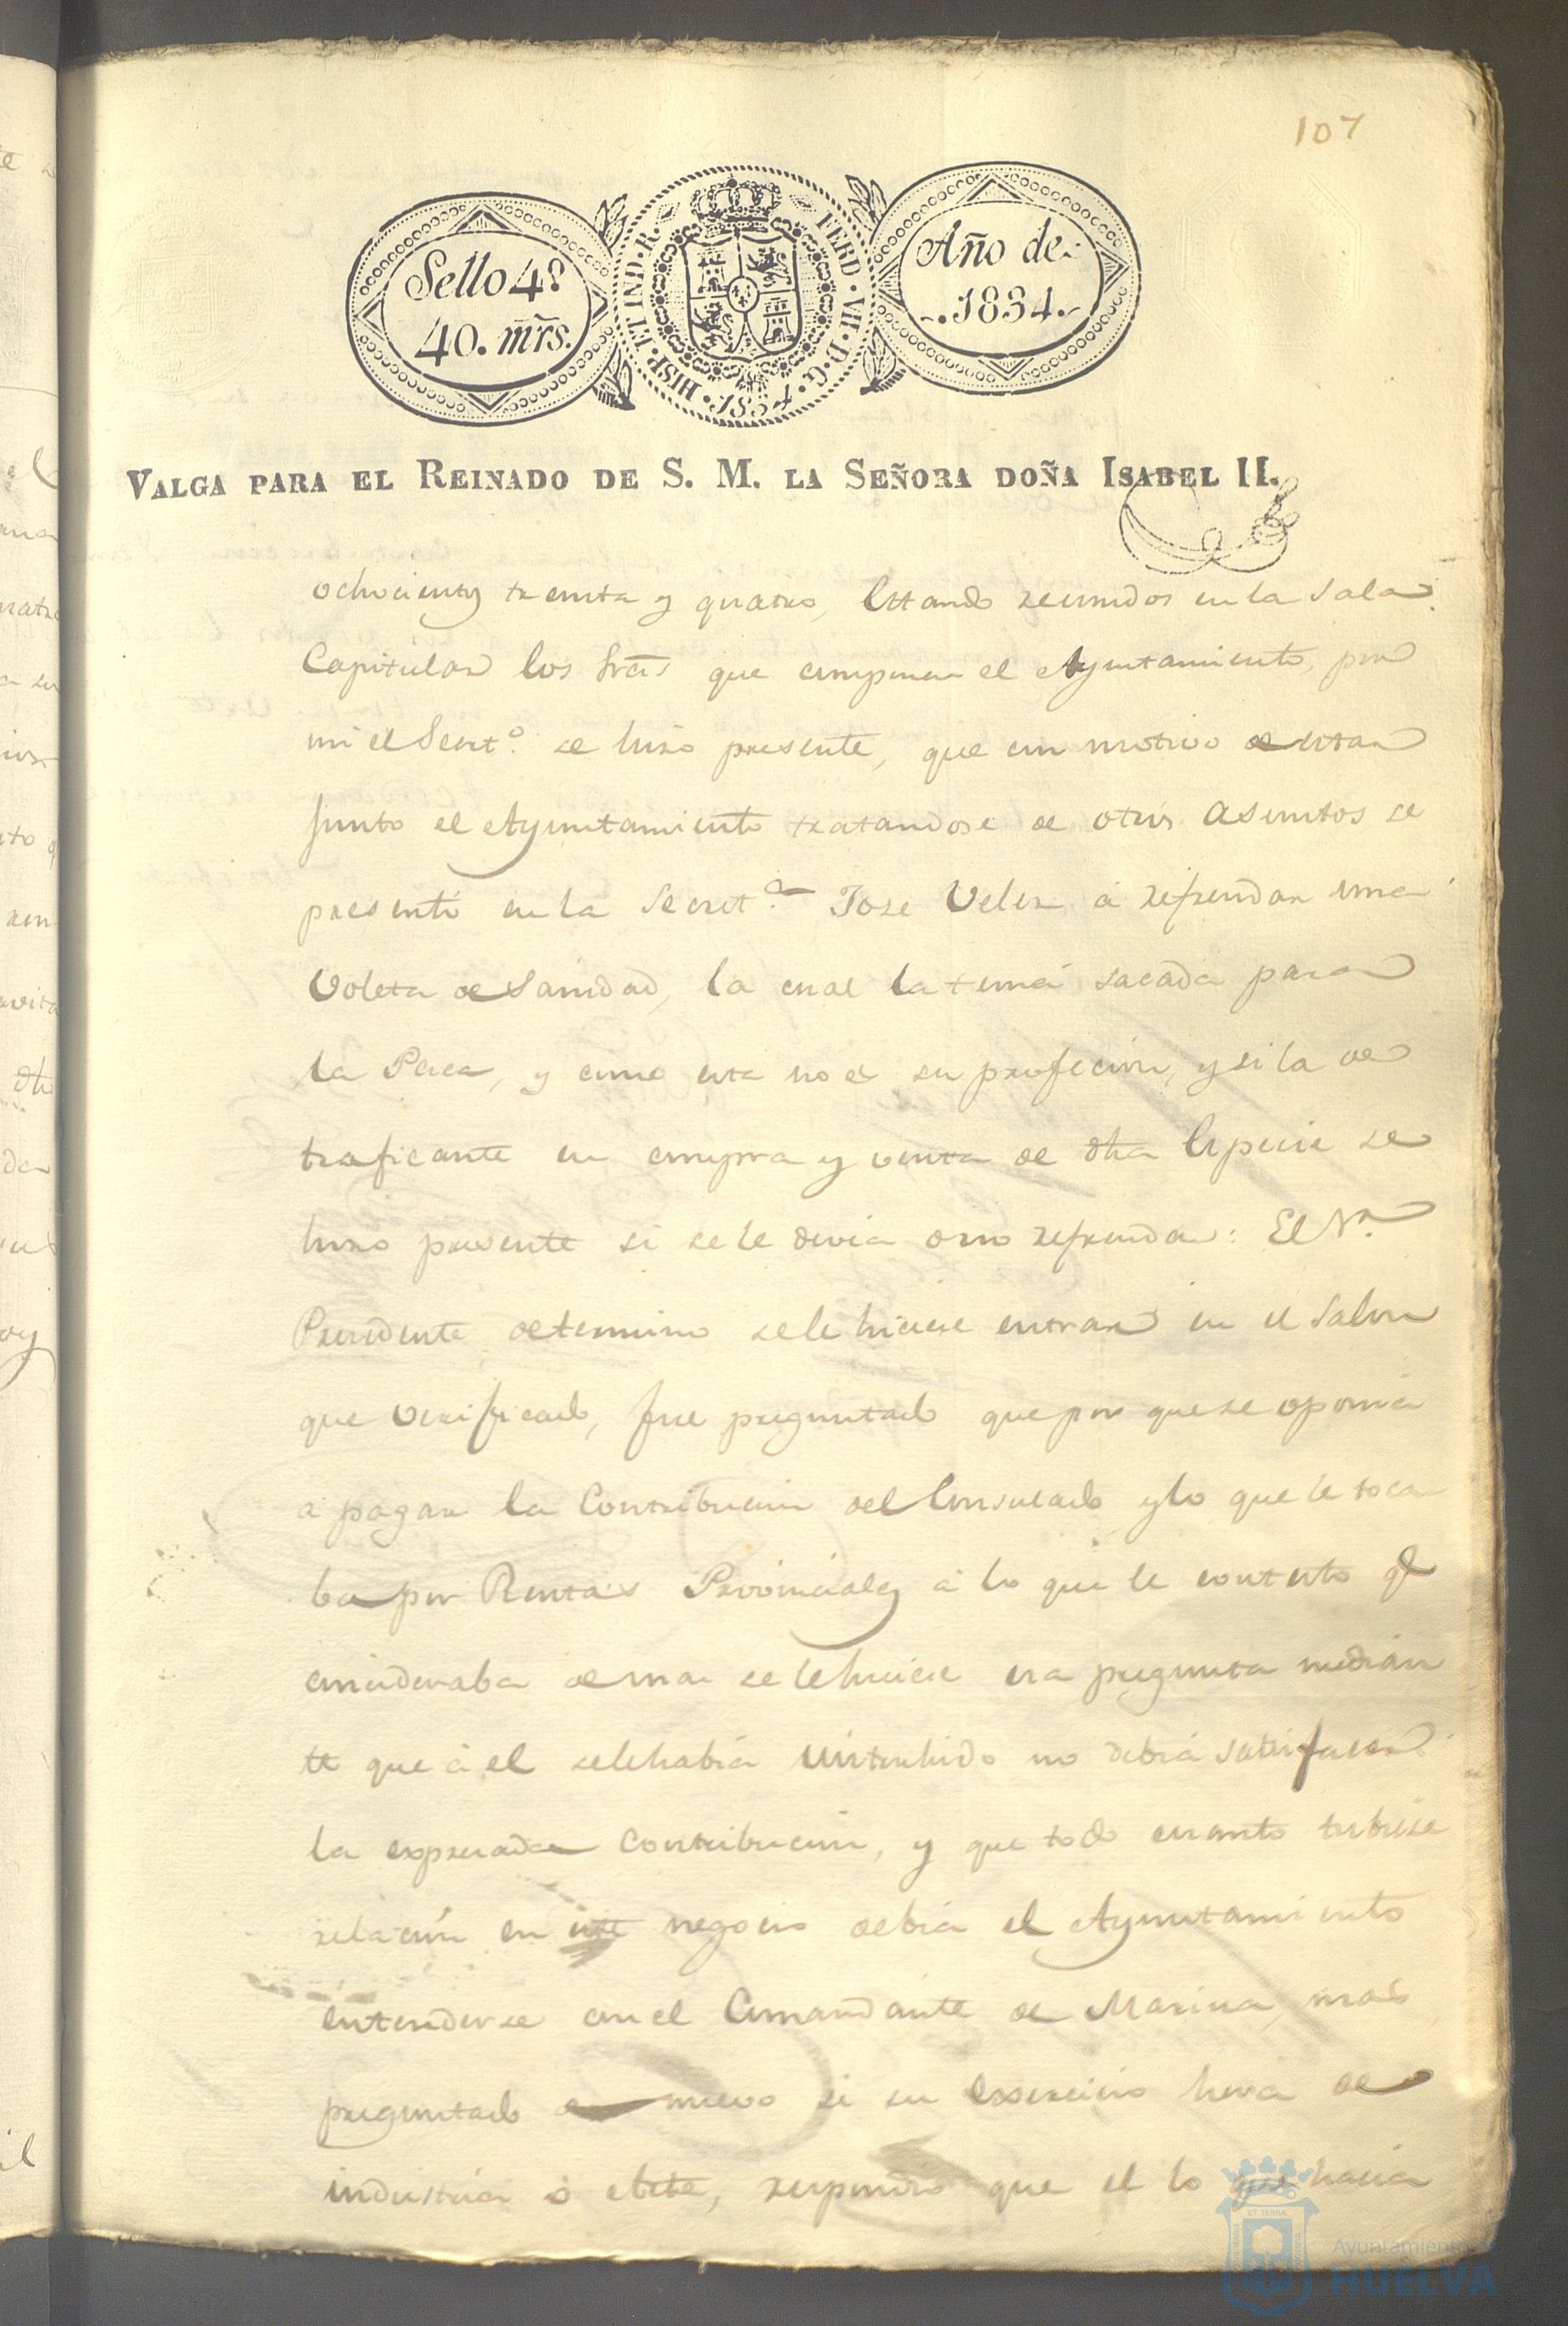 107
Sello 4º
40. mrs.
HISP. ET IND. R. FERD. VII. D. G. 1834.
Año de
1834.
VALGA PARA EL REINADO DE S. M. LA SEÑORA DOÑA ISABEL II.
ochocientos treinta y quatro, Estando reunidos en la Sala
Capitular los Sres que componen el Ayuntamiento, por
mi el Secrtº se hiso presente, que con motivo de estar
junto el Ayuntamiento tratandose de otros asuntos se
presentó en la Secretª Jose Velez á refrendar una
Voleta de Sanidad, la cual la tenia sacada para
la Pesca, y como esta no es su profecion, y si la de
traficante en compra y venta de dha Especie se
hiso presente si se le devia o no refrendar: El Sr
Presidente determino se le hiciese entrar en el Salon
que verificado, fue preguntado que por que se oponia
á pagar la Contribucion del Consulado y lo que le toca
ba por Rentas Provinciales á lo que le contesto q
concideraba de mas se le hiciese esa pregunta median
te que á el se le habia instruhido no debia satisfacer
la expresada Contribucion, y que todo cuanto tubiese
relacion en este negocio debia el Ayuntamiento
entenderse con el Comandante de Marina, mas
preguntado de nuevo si su exsercicio hera de
industria ó, respondió que el lo que hacia
Ayuntamiento
HUELVA